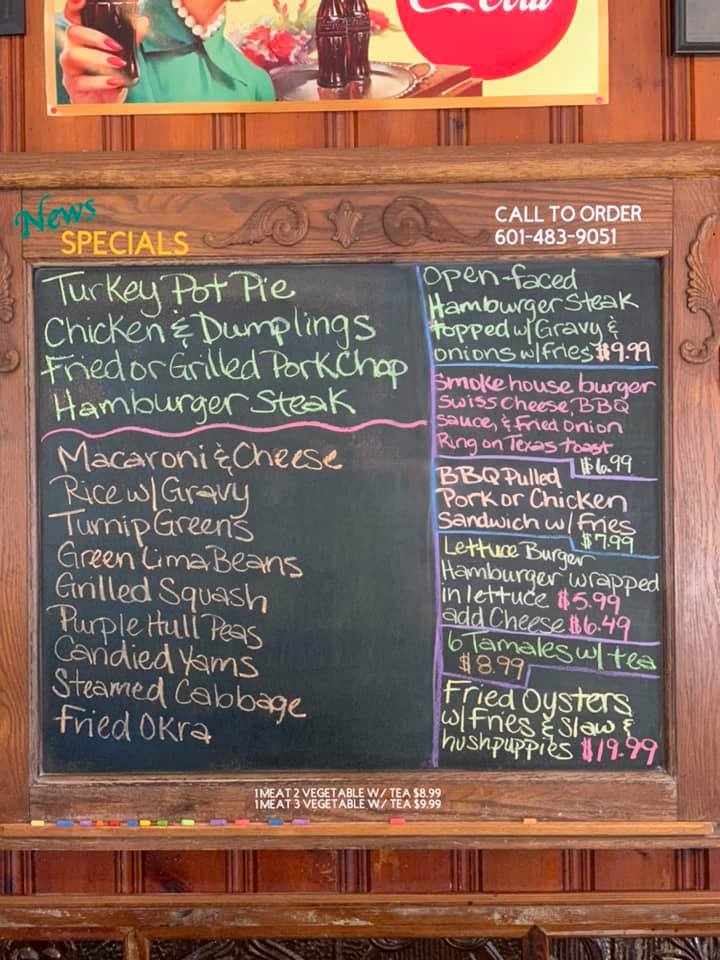 Coca-Cola
News
SPECIALS
CALL TO ORDER
601-483-9051
Turkey Pot Pie
Chicken & Dumplings
Fried or Grilled Pork Chop
Hamburger Steak
Macaroni & Cheese
Rice w/ Gravy
Turnip Greens
Green Lima Beans
Grilled Squash
Purple Hull Peas
Candied Yams
Steamed Cabbage
Fried OKra
Open-faced
Hamburger Steak
topped w/ Gravy &
onions w/ fries $9.99
Smokehouse burger
Swiss Cheese, BBQ
sauce, & Fried onion
Ring on Texas toast
$6.99
BBQ Pulled
Pork or Chicken
Sandwich w/ Fries
$7.99
Lettuce Burger
Hamburger wrapped
in lettuce $5.99
add Cheese $6.49
6 Tamales w/ tea
$8.99
Fried Oysters
w/ Fries & Slaw &
hushpuppies $19.99
1 MEAT 2 VEGETABLE W/ TEA $8.99
1 MEAT 3 VEGETABLE W/ TEA $9.99